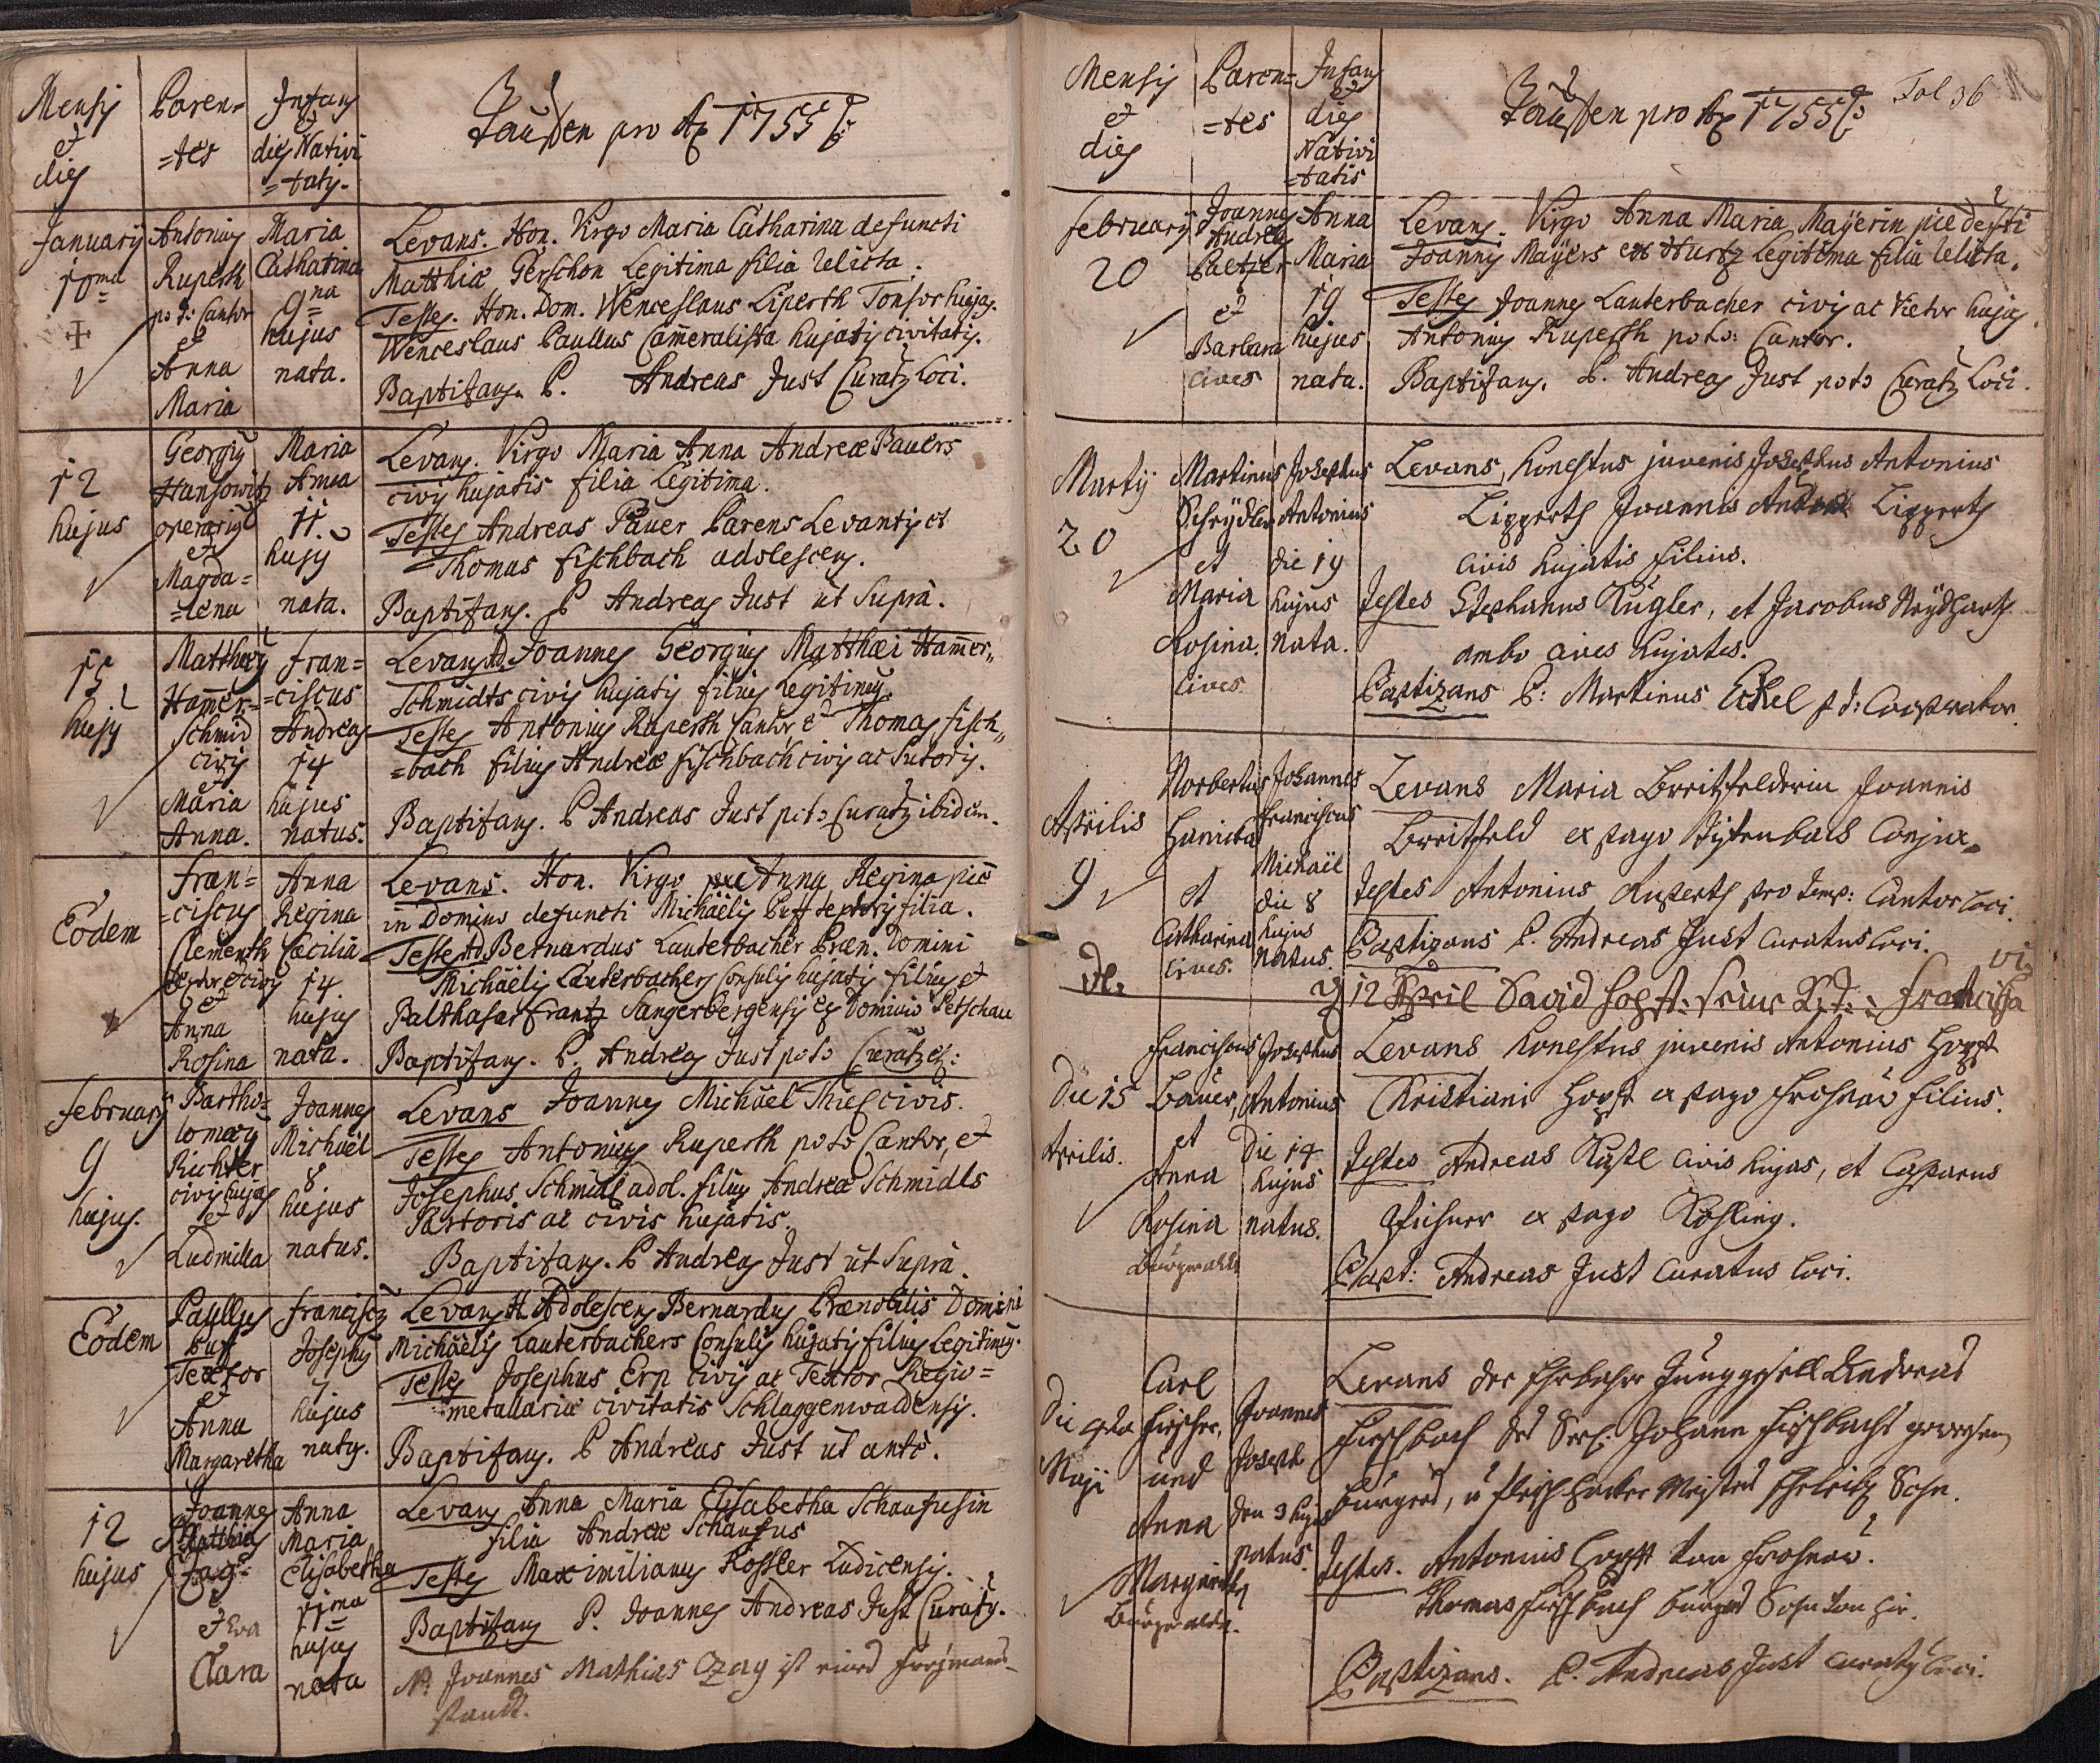 Mensis
et
dies
Paren-
=tes
Infans
et
dies Nativi
=tatis.
Tauffen pro Ao 1755
January
10ma
Antonius
Ruperth
p. t. Cantor
et
Anna
Maria
Maria
Catharina
9na
hujus
nata.
Levans. Hon. Virgo Maria Catharina defuncti
Matthiæ Gerschon Legitima filia relicta.
Testes. Hon. Dom. Wenceslaus Liperth Tonsor hujas.
Wenceslaus Paullus Cam̄eralista hujatis civitatis.
Baptizans. P. Andreas Just Curatus Loci.
12
hujus
Georgius
Hansowitz
operarius
et
Magda=
=lena
Maria
Anna
11.
hujus
nata.
Levans. Virgo Maria Anna Andreæ Bauers
civis hujatis filia Legitima.
Testes Andreas Pauer Parens Levantis et
Thomas fischbach adolescens.
Baptizans. P Andreas Just ut Suprà.
15
hujus
Matthæus
Ham̄er-
schmid
civis
et
Maria
Anna.
Fran=
=ciscus
Andreas
14
hujus
natus.
Levans Ad. Joannes Georgius Matthæi Ham̄er,,
Schmidts civis hujatis filius Legitimus.
Testes Antonius Ruperth Cantor, et Thomas fisch,,
=bach filius Andreæ fischbach civis ac Sutoris.
Baptizans. P Andreas Just p. to. Curatus ibidem.
Eodem
Fran=
=ciscus
Clementh
et civis
et
Anna
Rosina
Anna
Regina
Cæcilia
14
hujus
nata.
Levans. Hon. Virgo Anna Regina piè
in Domino defuncti Michaëlis Puff textoris filia.
Testes Ad. Bernardus Lauterbacher Præn. Domini
Michaëlis Lauterbachers Consulis hujatis filius, et
Balthasar Frantz Sangerbergensis ex Dominio Petschau
Baptizans. P. Andreas Just p. to. Curatus
February
9
hujus.
Bartho=
lomæus
Richter
civis hujas
et
Ludmilla
Joannes
Michaël
8
hujus
natus.
Levans Joannes Michaël Thiel civis.
Testes Antonius Ruperth p. to. Cantor, et
Josephus Schmidl adol. filius Andreæ Schmidls
Sartoris ac civis hujatis.
Baptizans. P Andreas Just ut Suprà.
Eodem
Paullus
Puff
Textor
et
Anna
Margaretha
Franciscus
Josephus
7
hujus
natus.
Levans H. Adolescens Bernardus Prænobilis Domini
Michaëlis Lauterbachers Consulis hujatis filius Legitimus.
Testes Josephus Erp civis ac Textor Regio=
metallariæ civitatis Schlaggenwaldensis.
Baptizans. P Andreas Just ut antè.
12
hujus
Joannes
Matthias
Czag
et Eva
Clara
Anna
Maria
Elisabetha
11ma
hujus
nata
Levans Anna Maria Elisabetha Schaufusin
filia Andreæ Schaufus
Testes Maximilianus Kossler Ludicensis.
Baptizans P. Joannes Andreas Just Curatus.
N. Joannes Mathias Czag ist eines
standts.
Mensis
et
dies
Paren=
=tes
Infans
et
dies
Nativi
=tatis
Tauffen pro Ao 1755
Fol 36
February
20
Joannes
Andreas
Paltzer
et
Barbara
cives
Anna
Maria
19
hujus
nata.
Levans. Virgo Anna Maria Mayerin piè defcti
Joannis Mayers ex Hurtz Legitima filia relicta.
Testes Joannes Lauterbacher civis ac Vietor hujas.
Antonius Ruperth p. to. Cantor.
Baptizans. P. Andreas Just p. to. Curatus Loci.
Marty
20
Martinus
et
Maria
Rosina.
Cives
Josephus
Antonius
die 19
hujus
nata.
Levans, honestus juvenis Josephus Antonius
Lipperth Joannis Lipperth
civis hujatis filius.
Testes Stephanus Kugler, et Jacobus Neydhart
ambo cives hujates.
Baptizans P: Martinus Eckel p. t: Cooperator.
Aprilis
9
Norbertus
et
Catharina
cives.
Johannes
Franciscus
Michaël
die 8
hujus
natus.
Levans Maria Breitfelderin Joannis
Breitfeld ex pago Conjux.
Testes Antonius Ruperth pro temp: Cantor loci.
Baptizans P. Andreas Just Curatus loci.
12 April David
Francisca
Die 15
Aprilis.
Franciscus
Bauer,
et
Anna
Rosina
Josephus
Antonius
Die 14
hujus
natus.
Levans honestus juvenis Antonius Hopf
Christiani Hopf ex pago Frohnau filius.
Testes Andreas civis hujas, et Casparus
ex pago Kohling.
Bapt: Andreas Just Curatus loci.
Die 4ta
Maji
Carl
Fischer,
und
Anna
Margaritha
Joannes
Joseph
den 3 hujus
natus.
Levans der Ehrbahre Junggesell Andreas
Fischbach des Seel. Johann Fischbachs gewesen
burgers, u Fleischhacker Meisters Sohn.
Testes. Antonius Hopff von Frohnau.
Thomas Fischbach burgers Sohn von hir.
Baptizans. P. Andreas Just Curatus loci.